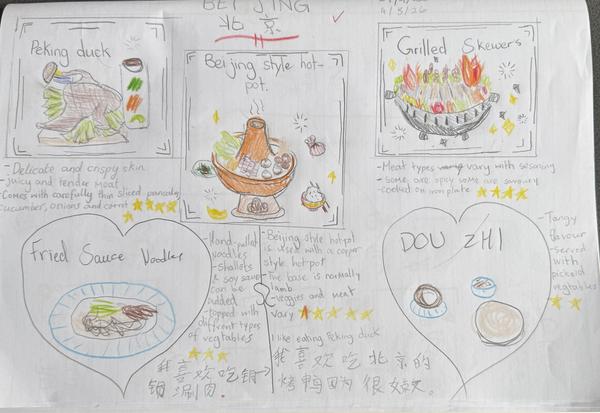 BEIJING
北京
4/3/26
Peking duck
Beijing style hot-
pot.
Grilled Skewers
- Delicate and crispy skin
juicy and tender meat
- Comes with carefully thin sliced pancake
cucumber, onions and carrot
- Meat types vary with
- Some are spicy some are savoury
cooked on iron plate
Fried Sauce Noodles
- Hand-pulled
noodles
- shallots
& soy sauce
can be
added
- topped with
different types
of vegetables
- Beijing style hot-pot
is used with a copper
style hot-pot
- The base is normally
lamb
- veggies and meat
vary
DOU ZHI
- Tangy
flavour
- served
with
vegtables
I like eating Peking duck
我喜欢吃北京的
烤鸭因为很
我喜欢吃
锅涮肉.